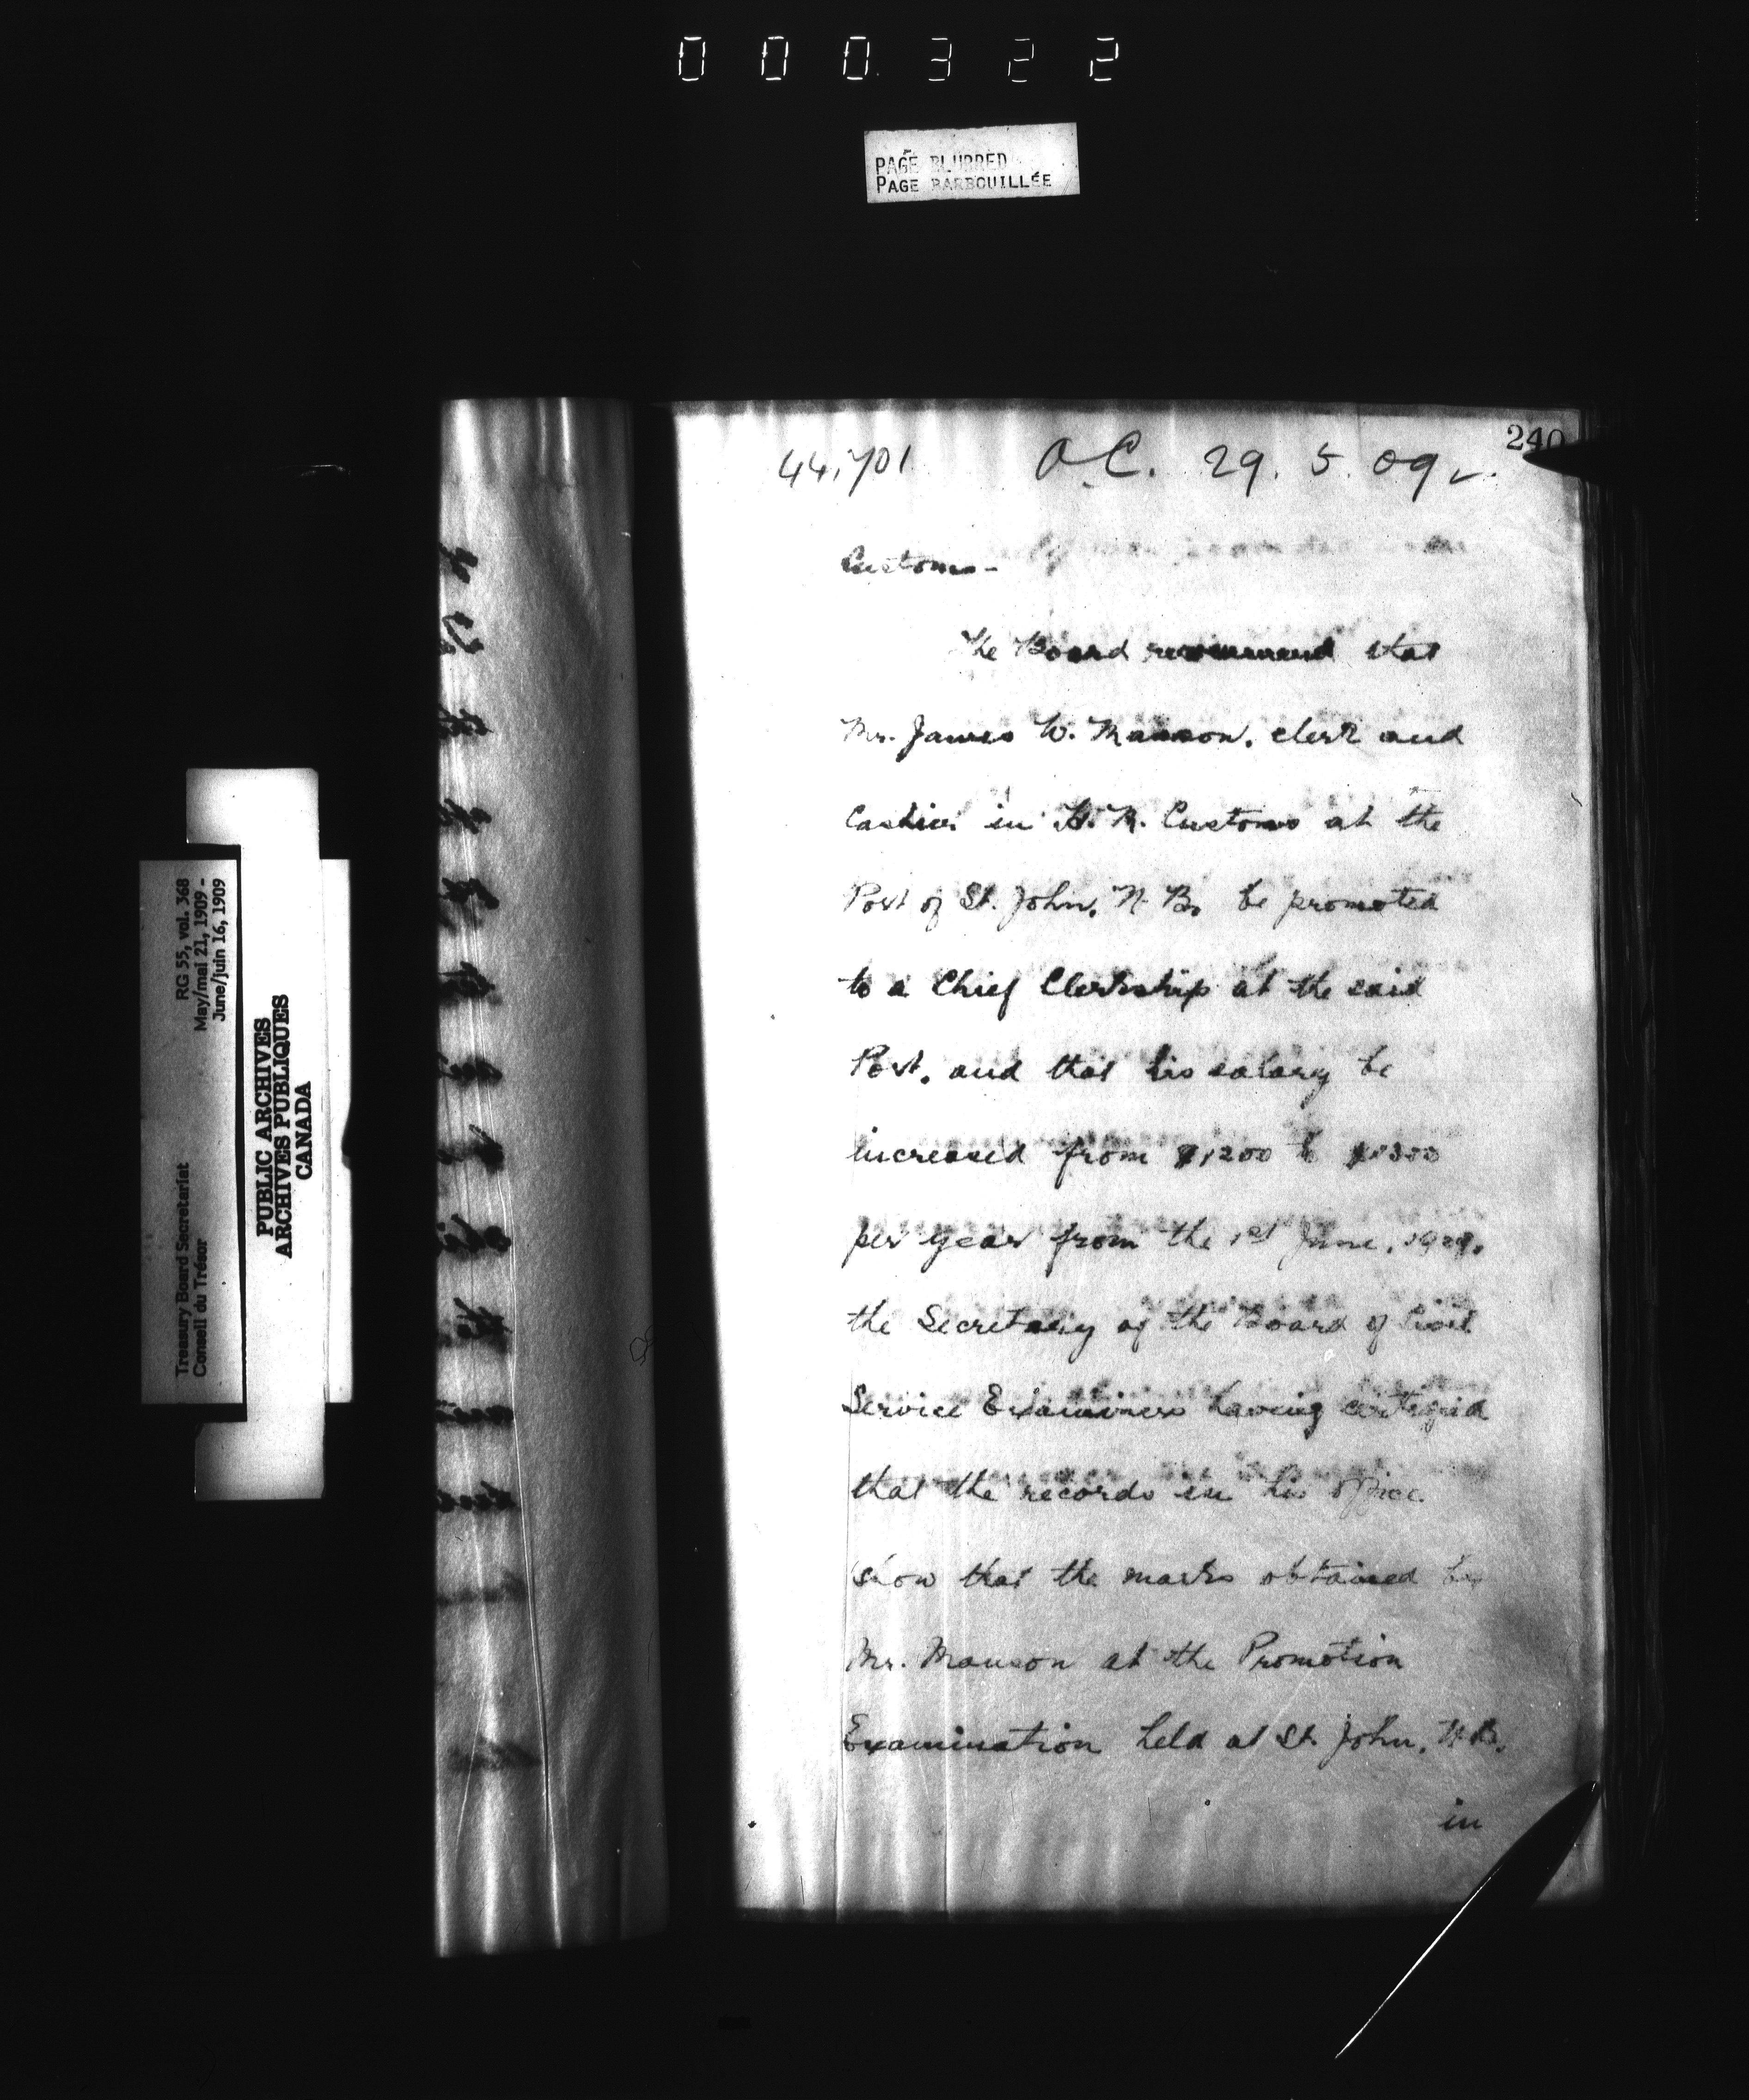 000322
PAGE BLURRED
PAGE BARBOUILLÉE
240
44,701 O.C. 29. 5. 09
Customs -
The Board recommend that
Mr. James W. Manson, clerk and
Cashier in H. M. Customs at the
Port of St. John, N. B. be promoted
to a Chief Clerkship at the said
Port, and that his salary be
increased from $1200 to $1300
per year from the 1st June, 1909,
the Secretary of the Board of Civil
Service Examiners having certified
that the records in his office
show that the marks obtained by
Mr. Manson at the Promotion
Examination held at St. John, N.B.
in
Treasury Board Secretariat RG 55, vol. 368
Conseil du Trésor May/mai 21, 1909 -
June/juin 16, 1909
PUBLIC ARCHIVES
ARCHIVES PUBLIQUES
CANADA